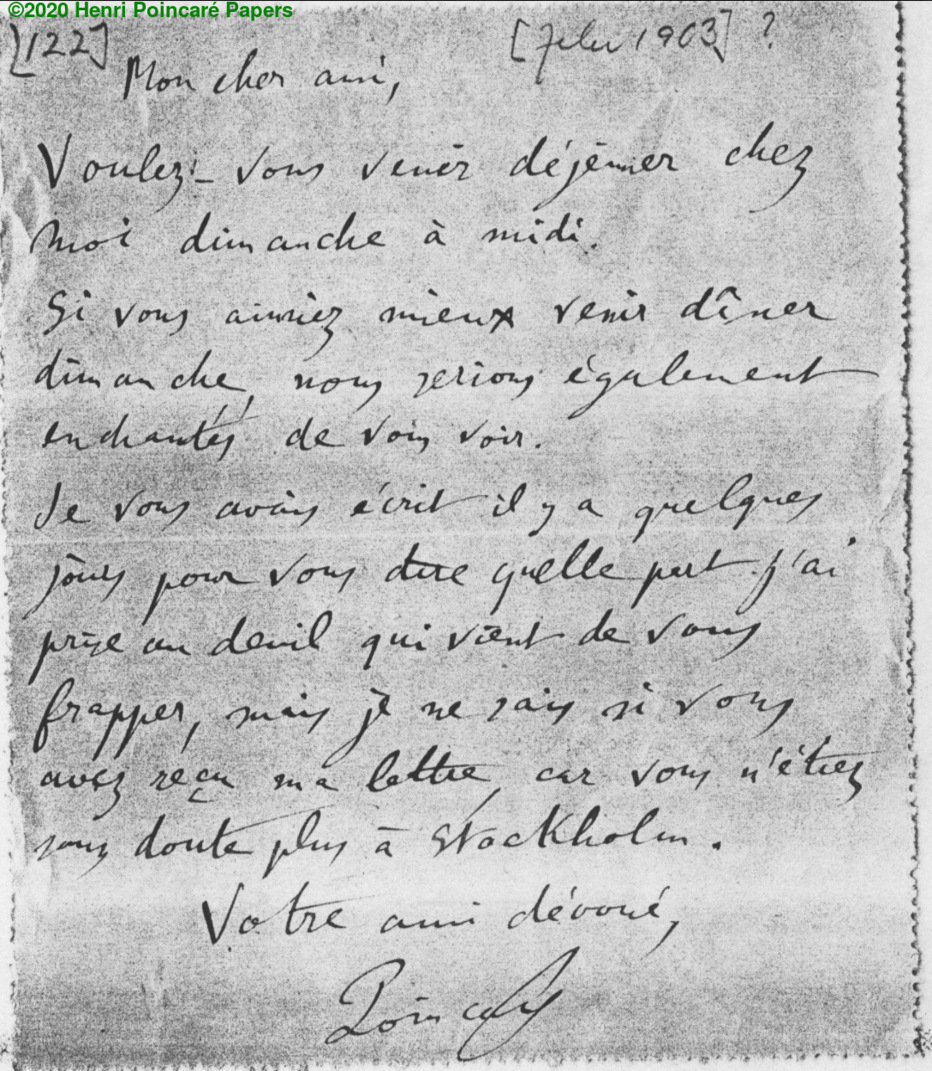 ©2020 Henri Poincaré Papers
[122] [Febr 1903] ?
Mon cher ami,
Voulez-vous venir déjeuner chez
moi dimanche à midi.
Si vous aimiez mieux venir dîner
dimanche, nous serions également
enchantés de vous voir.
Je vous avais écrit il y a quelques
jours pour vous dire quelle part j'ai
prise au deuil qui vient de vous
frapper, mais je ne sais si vous
avez reçu ma lettre, car vous n'étiez
sans doute plus à Stockholm.
Votre ami dévoué,
Poincaré